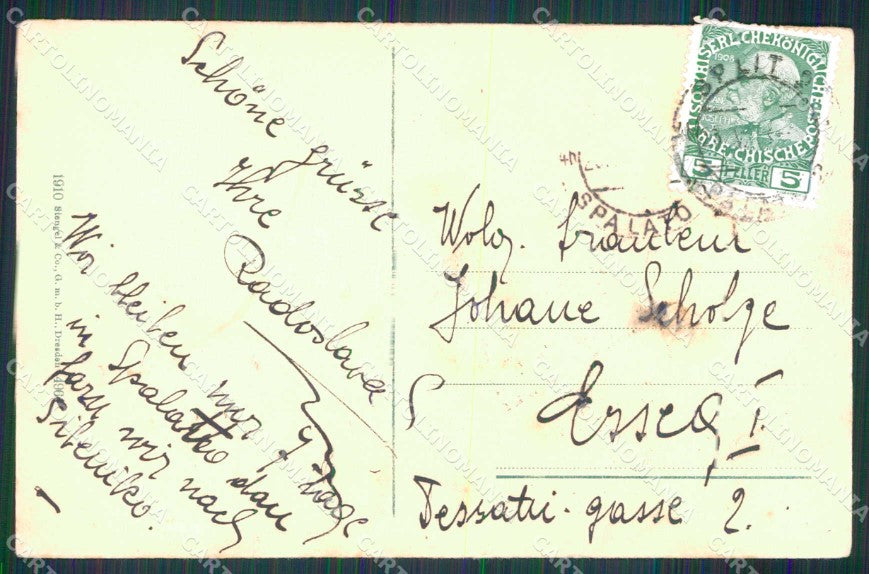 Schöne Grüsse
Ihre
Radoslava
Wir bleiben nur 9 tage
in Spalatto dan
farn wir nach
Sibeniko.
1910 Stengel & Co., G. m. b. H., Dresden
KAISERL. KÖNIGLICHE
1908
ÖSTERREICHISCHE POST
5 HELLER 5
SPLIT
SPALATO
SPALATO
Wolg. Fräulein
Johane Scholze
Esseg I.
Dessatti-gasse 2.
CARTOLINOMANIA